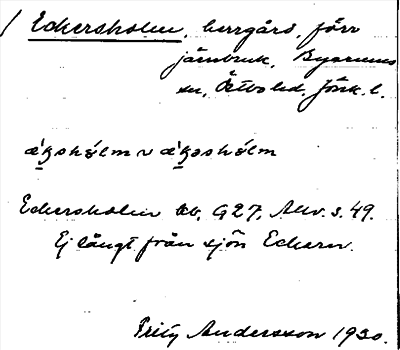 / Eckersholm, herrgård, förr
järnbruk, Byarums
sn, Östbo hd, Jönk. l.
ækshólm ~ ækəshólm
Eckersholm kb, G27, Allv. s. 49.
Ej långt från sjön Eckern.
Fritz Andersson 1930.